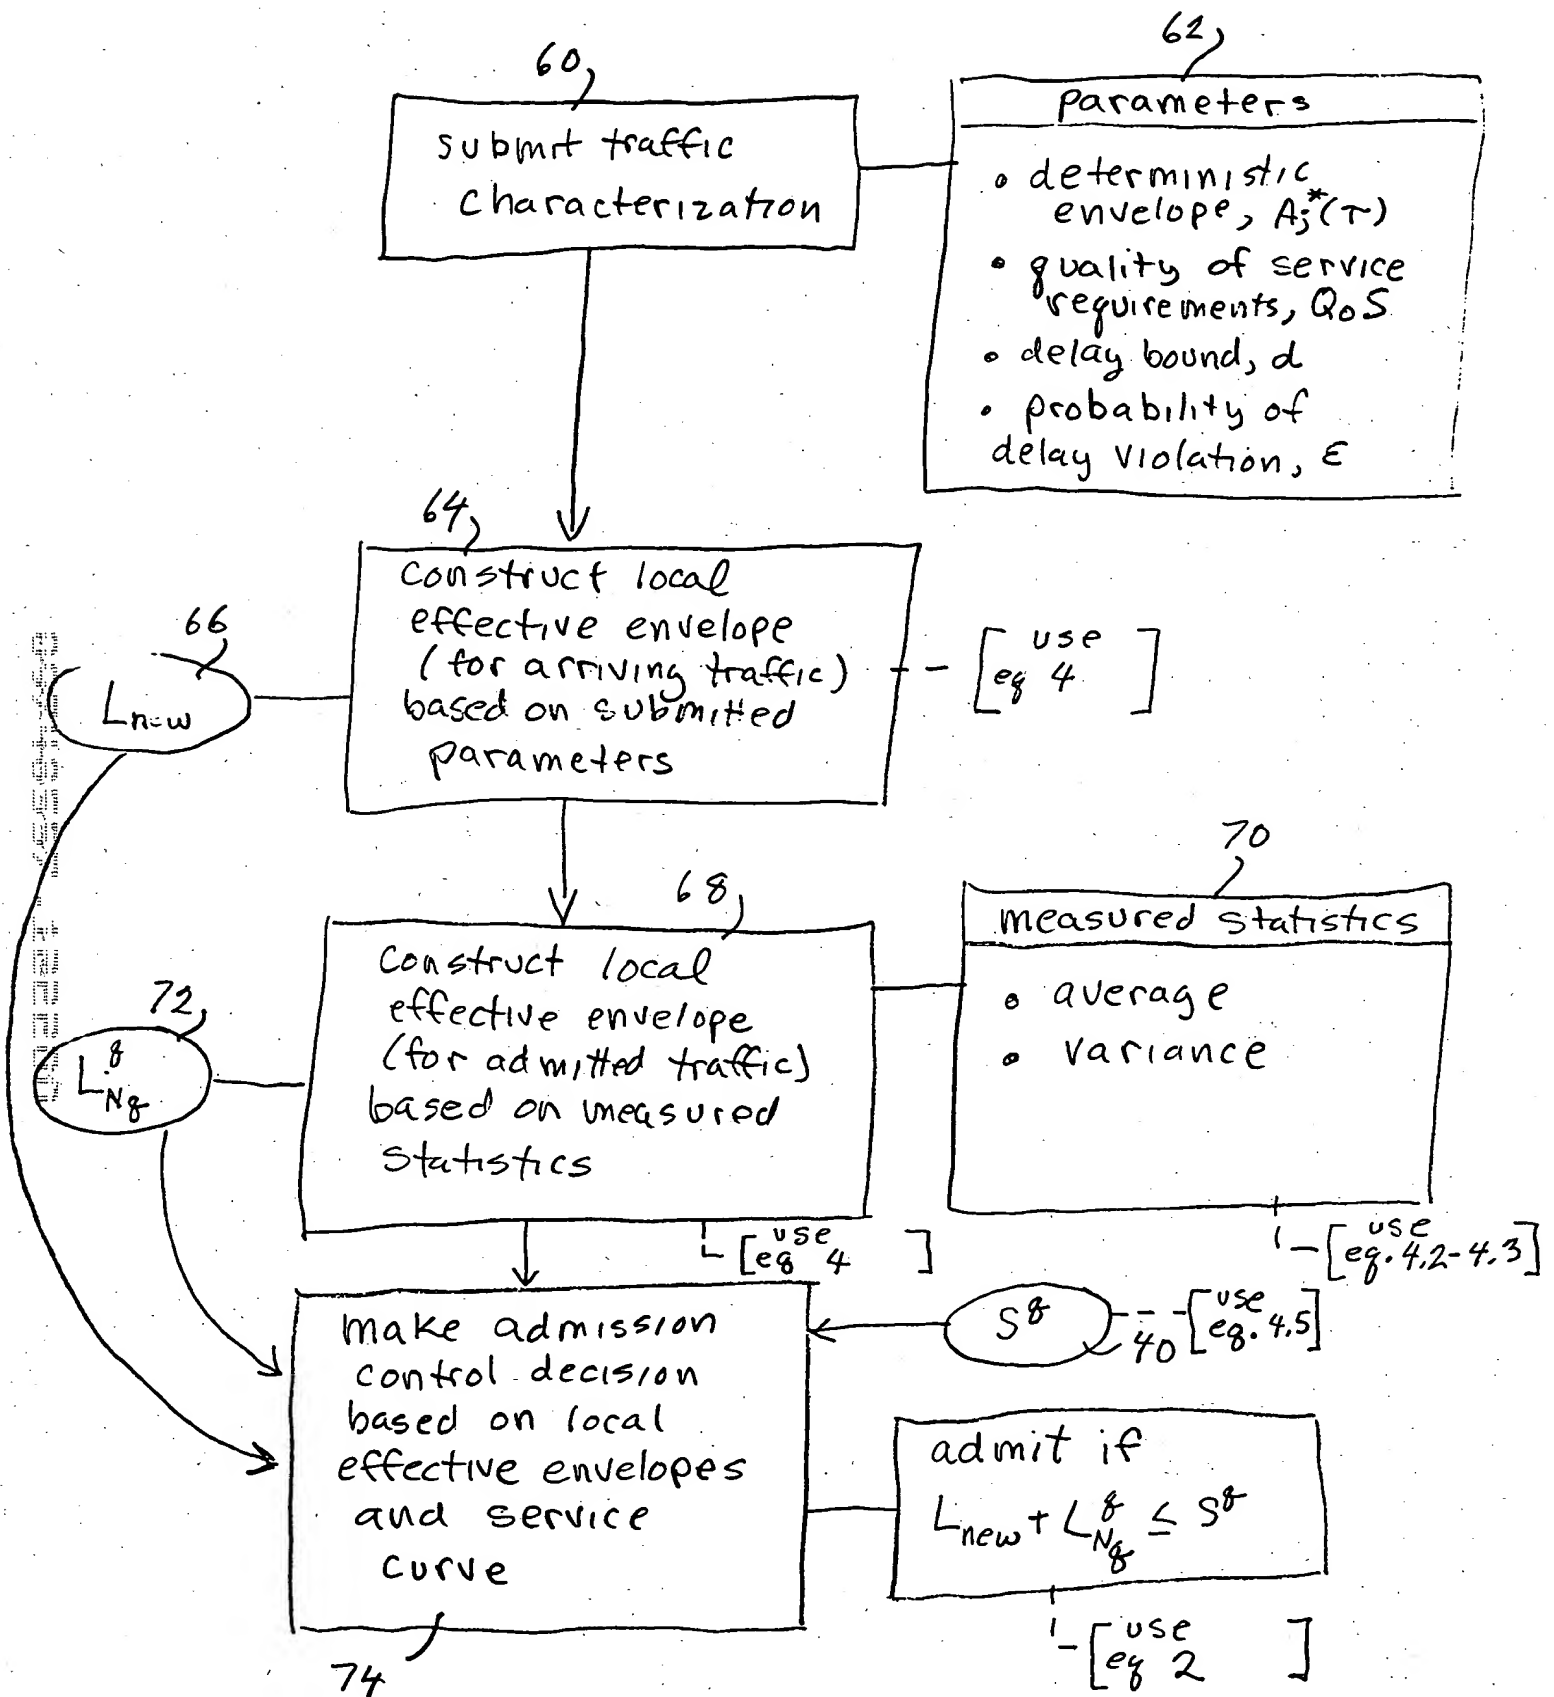 60
62
submit traffic
characterization
parameters
• deterministic
envelope, Aj*(τ)
• quality of service
requirements, QoS
• delay bound, d
• probability of
delay violation, ε
64
construct local
effective envelope
(for arriving traffic)
based on submitted
parameters
[use
eq 4]
66
Lnew
68
construct local
effective envelope
(for admitted traffic)
based on measured
statistics
[use
eq 4]
70
measured statistics
• average
• variance
[use
eq. 4.2-4.3]
72
L^q_Nq
make admission
control decision
based on local
effective envelopes
and service
curve
74
S^q
40
[use
eq. 4.5]
admit if
Lnew + L^q_Nq ≤ S^q
[use
eq 2]